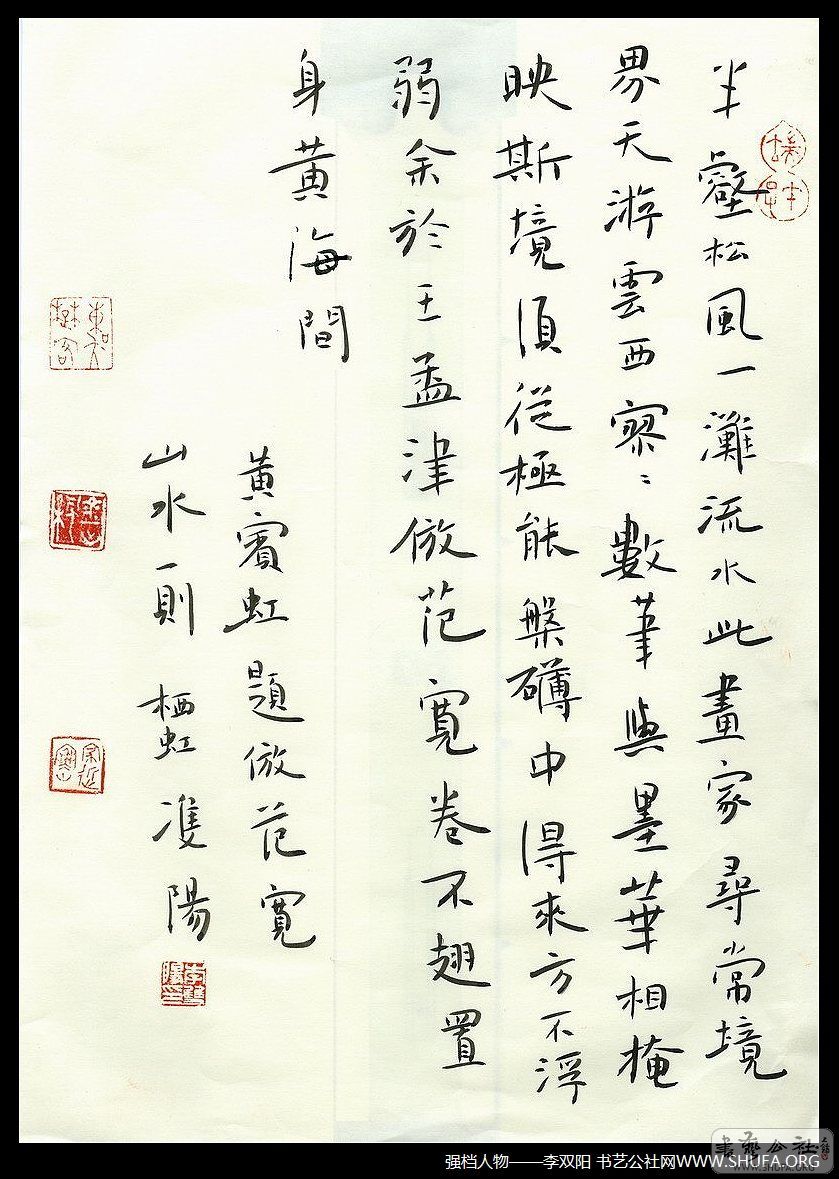 半壑松風一灘流水此畫家尋常境
界天游雲西寥〻數筆與墨華相掩
映斯境須從極能槃礴中得來方不浮
弱余於王孟津倣范寬卷不翅置
身黃海間
黃賓虹題倣范寬
山水一則栖虹雙陽
强档人物——李双阳 书艺公社网WWW.SHUFA.ORG